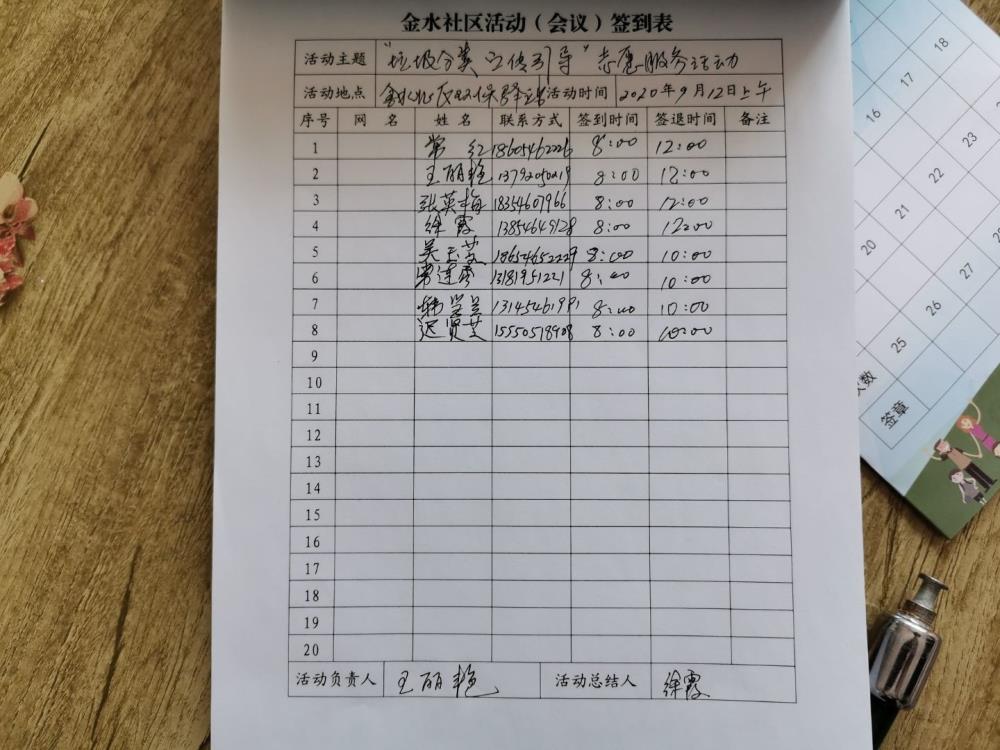 金水社区活动（会议）签到表
活动主题 "垃圾分类 宣传引导" 志愿服务活动
活动地点 金水社区环保驿站 活动时间 2020年9月12日上午
序号 网 名 姓 名 联系方式 签到时间 签退时间 备注
1 常 红 18605462226 8:00 12:00
2 王丽艳 1379205021 8:00 12:00
3 张英梅 18354607966 8:00 12:00
4 徐霞 13854649128 8:00 12:00
5 吴玉芝 18654652229 8:00 10:00
6 13181951221 8:00 10:00
7 韩兰 13145461991 8:00 10:00
8 迟贤芝 15550518908 8:00 10:00
9
10
11
12
13
14
15
16
17
18
19
20
活动负责人 王丽艳 活动总结人 徐霞
18
17
16
23
22
21
20
27
26
25
次数
签章